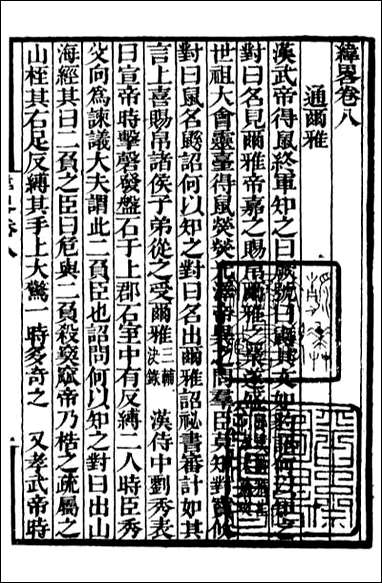 緯畧卷八
通爾雅
漢武帝得鼠終軍知之曰厥號曰其文如豹詔何以知之
對曰名見爾雅帝嘉之賜帛爾雅之業遂盛
世祖大會靈臺得鼠熒熒光澤帝異之問羣臣莫知對竇攸
對曰鼠名詔何以知之對曰名出爾雅詔祕書審計如其
言上喜賜帛諸侯子弟從之受爾雅三輔決錄 漢侍中劉秀表
曰宣帝時擊磻發盤石于上郡石室中有反縛二人時臣秀
父向為諫議大夫謂此二負臣也詔問何以知之對曰出山
海經其曰二負之臣曰危與二負殺窫窳帝乃梏之疏屬之
山桎其右足反縛其手上大驚一時多奇之 又孝武帝時